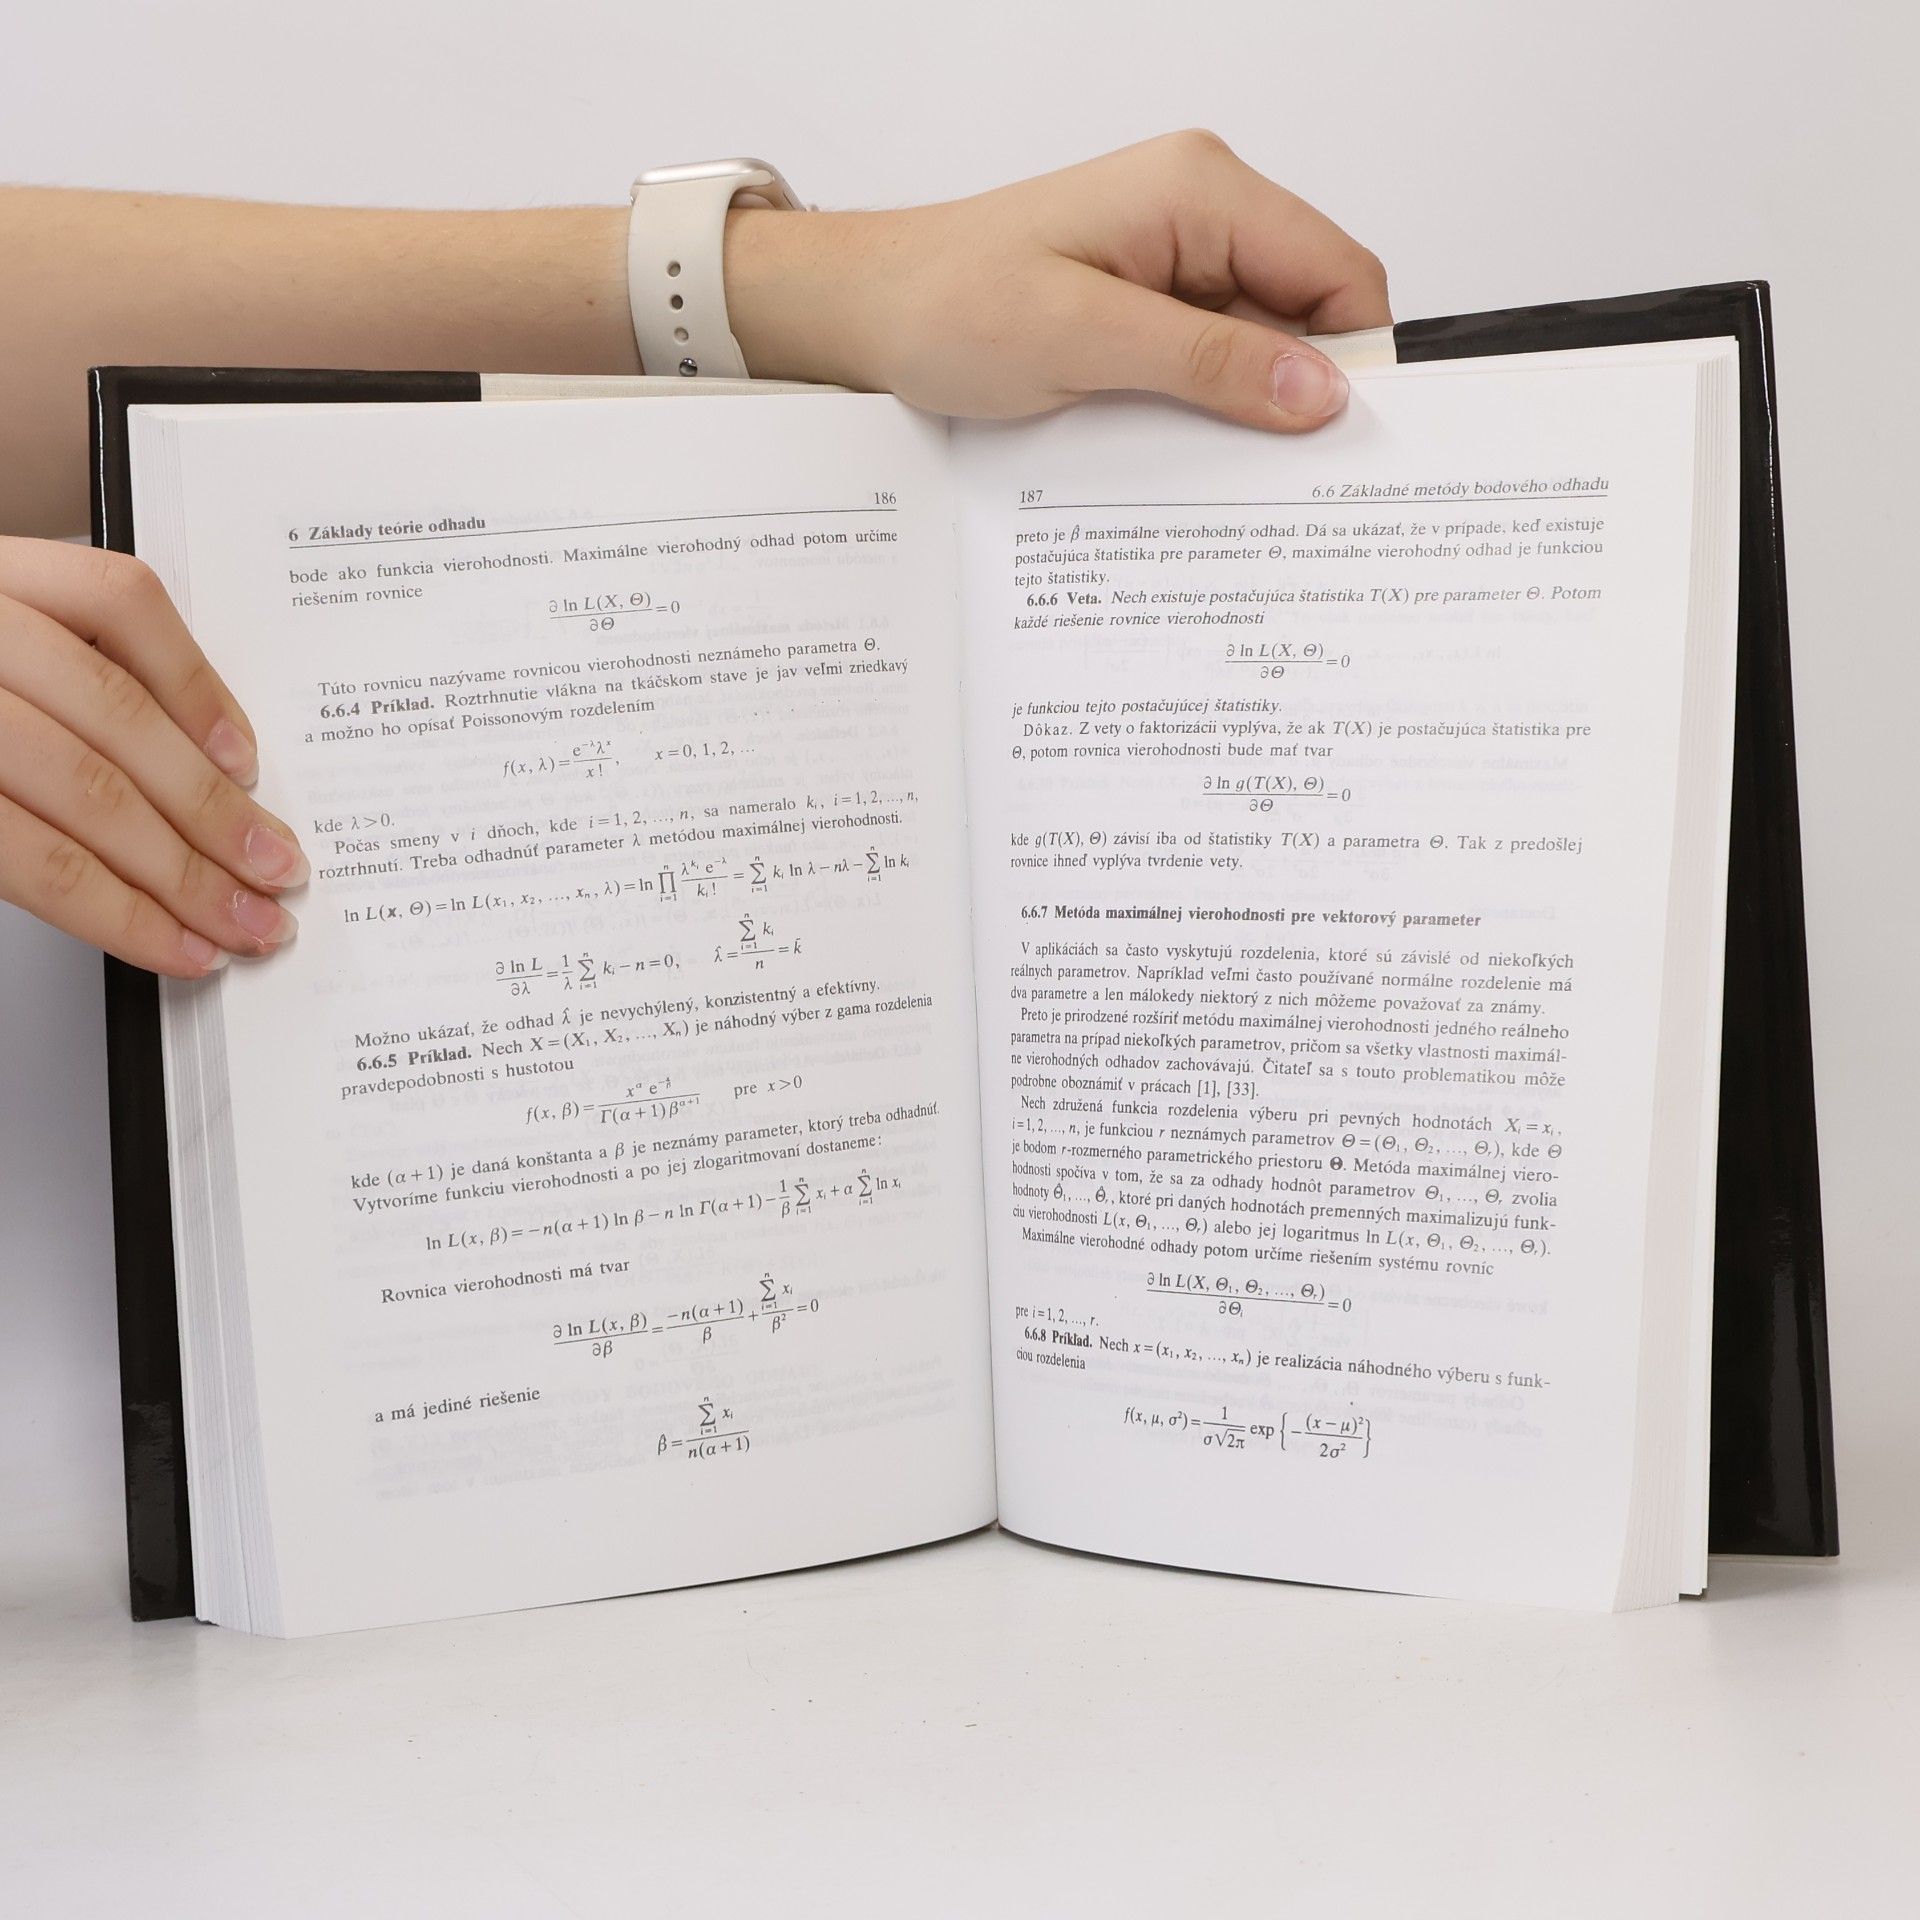 6 Základy teórie odhadu 186
bode ako funkcia vierohodnosti. Maximálne vierohodný odhad potom určíme
riešením rovnice
∂ ln L(X, Θ)/∂Θ = 0
Túto rovnicu nazývame rovnicou vierohodnosti neznámeho parametra Θ.
6.6.4 Príklad. Roztrhnutie vlákna na tkáčskom stave je jav veľmi zriedkavý
a možno ho opísať Poissonovým rozdelením
f(x, λ) = e^{-λ}λ^x/x!, x = 0, 1, 2, ...
kde λ > 0.
Počas smeny v i dňoch, kde i = 1, 2, ..., n, sa nameralo k_i, i = 1, 2, ..., n,
roztrhnutí. Treba odhadnúť parameter λ metódou maximálnej vierohodnosti.
ln L(x, Θ) = ln L(x_1, x_2, ..., x_n, λ) = ln ∏_{i=1}^{n} λ^{k_i} e^{-λ}/k_i! = ∑_{i=1}^{n} k_i ln λ − nλ − ∑_{i=1}^{n} ln k_i
∂ ln L/∂λ = 1/λ ∑_{i=1}^{n} k_i − n = 0, λ̂ = ∑_{i=1}^{n} k_i/n = k̄
Možno ukázať, že odhad λ̂ je nevychýlený, konzistentný a efektívny.
6.6.5 Príklad. Nech X = (X_1, X_2, ..., X_n) je náhodný výber z gama rozdelenia
pravdepodobnosti s hustotou
f(x, β) = x^α e^{-x/β}/Γ(α + 1)β^{α+1} pre x > 0
kde (α + 1) je daná konštanta a β je neznámy parameter, ktorý treba odhadnúť.
Vytvoríme funkciu vierohodnosti a po jej zlogaritmovaní dostaneme:
ln L(x, β) = −n(α + 1) ln β − n ln Γ(α + 1) − 1/β ∑_{i=1}^{n} x_i + α ∑_{i=1}^{n} ln x_i
Rovnica vierohodnosti má tvar
∂ ln L(x, β)/∂β = −n(α + 1)/β + ∑_{i=1}^{n} x_i/β² = 0
a má jediné riešenie
β̂ = ∑_{i=1}^{n} x_i/n(α + 1)
187 6.6 Základné metódy bodového odhadu
preto je β̂ maximálne vierohodný odhad. Dá sa ukázať, že v prípade, keď existuje
postačujúca štatistika pre parameter Θ, maximálne vierohodný odhad je funkciou
tejto štatistiky.
6.6.6 Veta. Nech existuje postačujúca štatistika T(X) pre parameter Θ. Potom
každé riešenie rovnice vierohodnosti
∂ ln L(X, Θ)/∂Θ = 0
je funkciou tejto postačujúcej štatistiky.
Dôkaz. Z vety o faktorizácii vyplýva, že ak T(X) je postačujúca štatistika pre
Θ, potom rovnica vierohodnosti bude mať tvar
∂ ln g(T(X), Θ)/∂Θ = 0
kde g(T(X), Θ) závisí iba od štatistiky T(X) a parametra Θ. Tak z predošlej
rovnice ihneď vyplýva tvrdenie vety.
6.6.7 Metóda maximálnej vierohodnosti pre vektorový parameter
V aplikáciách sa často vyskytujú rozdelenia, ktoré sú závislé od niekoľkých
reálnych parametrov. Napríklad veľmi často používané normálne rozdelenie má
dva parametre a len málokedy niektorý z nich môžeme považovať za známy.
Preto je prirodzené rozšíriť metódu maximálnej vierohodnosti jedného reálneho
parametra na prípad niekoľkých parametrov, pričom sa všetky vlastnosti maximál-
ne vierohodných odhadov zachovávajú. Čitateľ sa s touto problematikou môže
podrobne oboznámiť v prácach [1], [33].
Nech združená funkcia rozdelenia výberu pri pevných hodnotách X_i = x_i,
i = 1, 2, ..., n, je funkciou r neznámych parametrov Θ = (Θ_1, Θ_2, ..., Θ_r), kde Θ
je bodom r-rozmerného parametrického priestoru Θ. Metóda maximálnej viero-
hodnosti spočíva v tom, že sa za odhady hodnôt parametrov Θ_1, ..., Θ_r zvolia
hodnoty Θ̂_1, ..., Θ̂_r, ktoré pri daných hodnotách premenných maximalizujú funk-
ciu vierohodnosti L(x, Θ_1, ..., Θ_r) alebo jej logaritmus ln L(x, Θ_1, Θ_2, ..., Θ_r).
Maximálne vierohodné odhady potom určíme riešením systému rovníc
∂ ln L(X, Θ_1, Θ_2, ..., Θ_r)/∂Θ_i = 0
pre i = 1, 2, ..., r.
6.6.8 Príklad. Nech x = (x_1, x_2, ..., x_n) je realizácia náhodného výberu s funk-
ciou rozdelenia
f(x, μ, σ²) = 1/σ√2π exp {−(x − μ)²/2σ²}